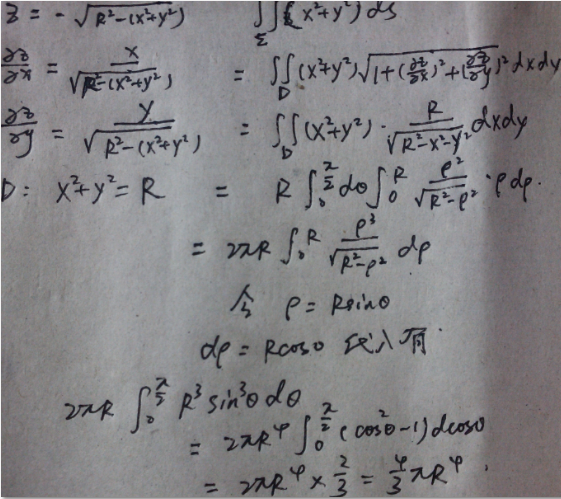 z = -√(R²-(x²+y²))    ∬_Σ (x²+y²) ds
∂z/∂x = x/√(R²-(x²+y²))    = ∬_D (x²+y²)√(1+(∂z/∂x)²+(∂z/∂y)²) dxdy
∂z/∂y = y/√(R²-(x²+y²))    = ∬_D (x²+y²)·R/√(R²-x²-y²) dxdy
D: x²+y²=R    = R∫₀^(π/2) dθ ∫₀^R ρ²/√(R²-ρ²)·ρdρ.
= 2πR ∫₀^R ρ³/√(R²-ρ²) dρ
令 ρ = Rsinθ
dρ = Rcosθ 代入有
2πR ∫₀^(π/2) R³ sin³θ dθ
= 2πR⁴ ∫₀^(π/2) (cos²θ-1) dcosθ
= 2πR⁴ × 2/3 = 4/3 πR⁴.